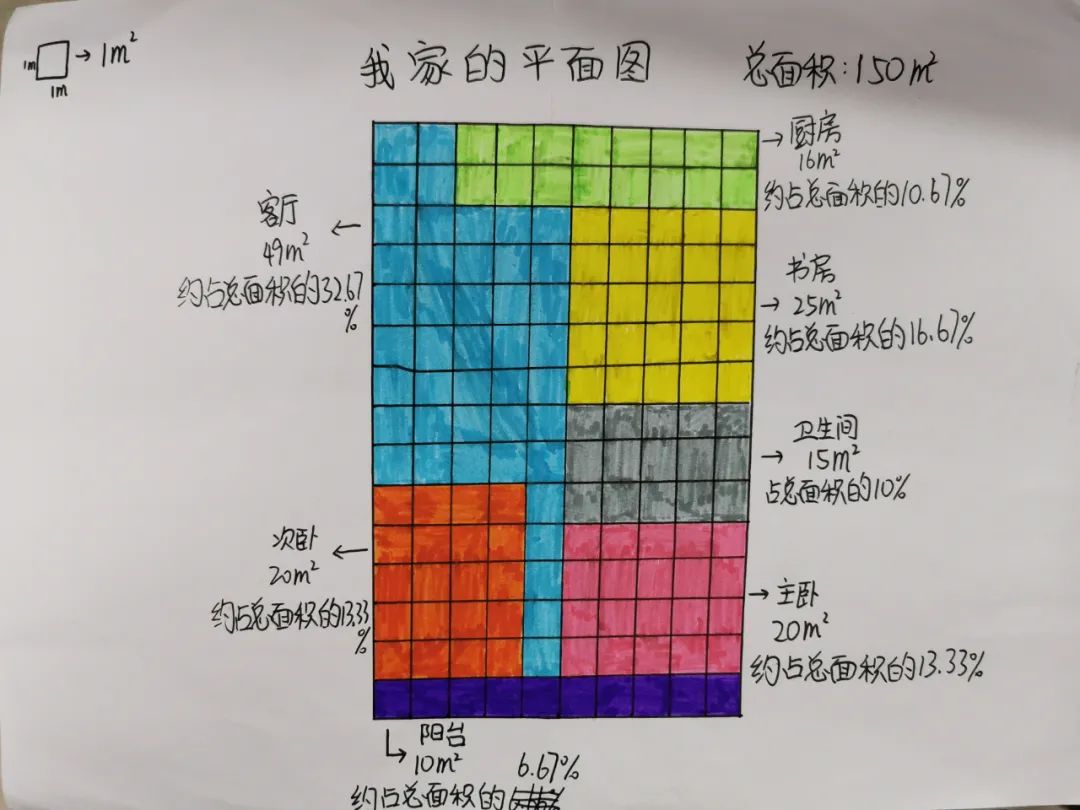 1m → 1m²
1m
我家的平面图
总面积:150m²
→厨房
16m²
约占总面积的10.67%
客厅 ←
49m²
约占总面积的32.67
%
书房
→ 25m²
约占总面积的16.67%
卫生间
→ 15m²
占总面积的10%
次卧 ←
20m²
约占总面积的13.33
%
→ 主卧
20m²
约占总面积的13.33%
阳台
10m² 6.67%
约占总面积的